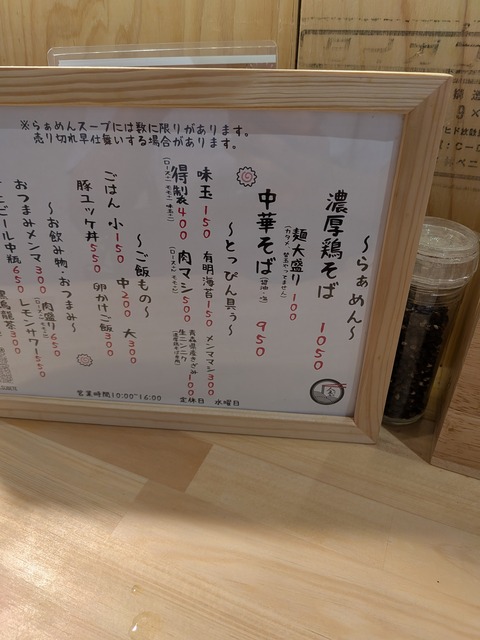 ※らぁめんスープには数に限りがあります。
売り切れ早仕舞いする場合があります。
～らぁめん～
濃厚鶏そば 1050
麺大盛り 100
(カタメ、替玉やってません)
中華そば 950
～とっぴん具ぅ～
味玉 150 有明海苔 150 メンママシ 300
得製 400 肉マシ 500 青森県産きざみ生ニンニク 100
～ご飯もの～
ごはん 小 150 中 200 大 300
豚ユッケ丼 550 卵かけご飯 300
～お飲み物・おつまみ～
おつまみメンマ 300 肉盛り 650
ビール中瓶 650 レモンサワー 550
黒烏龍茶 300
営業時間10:00~16:00 定休日 水曜日